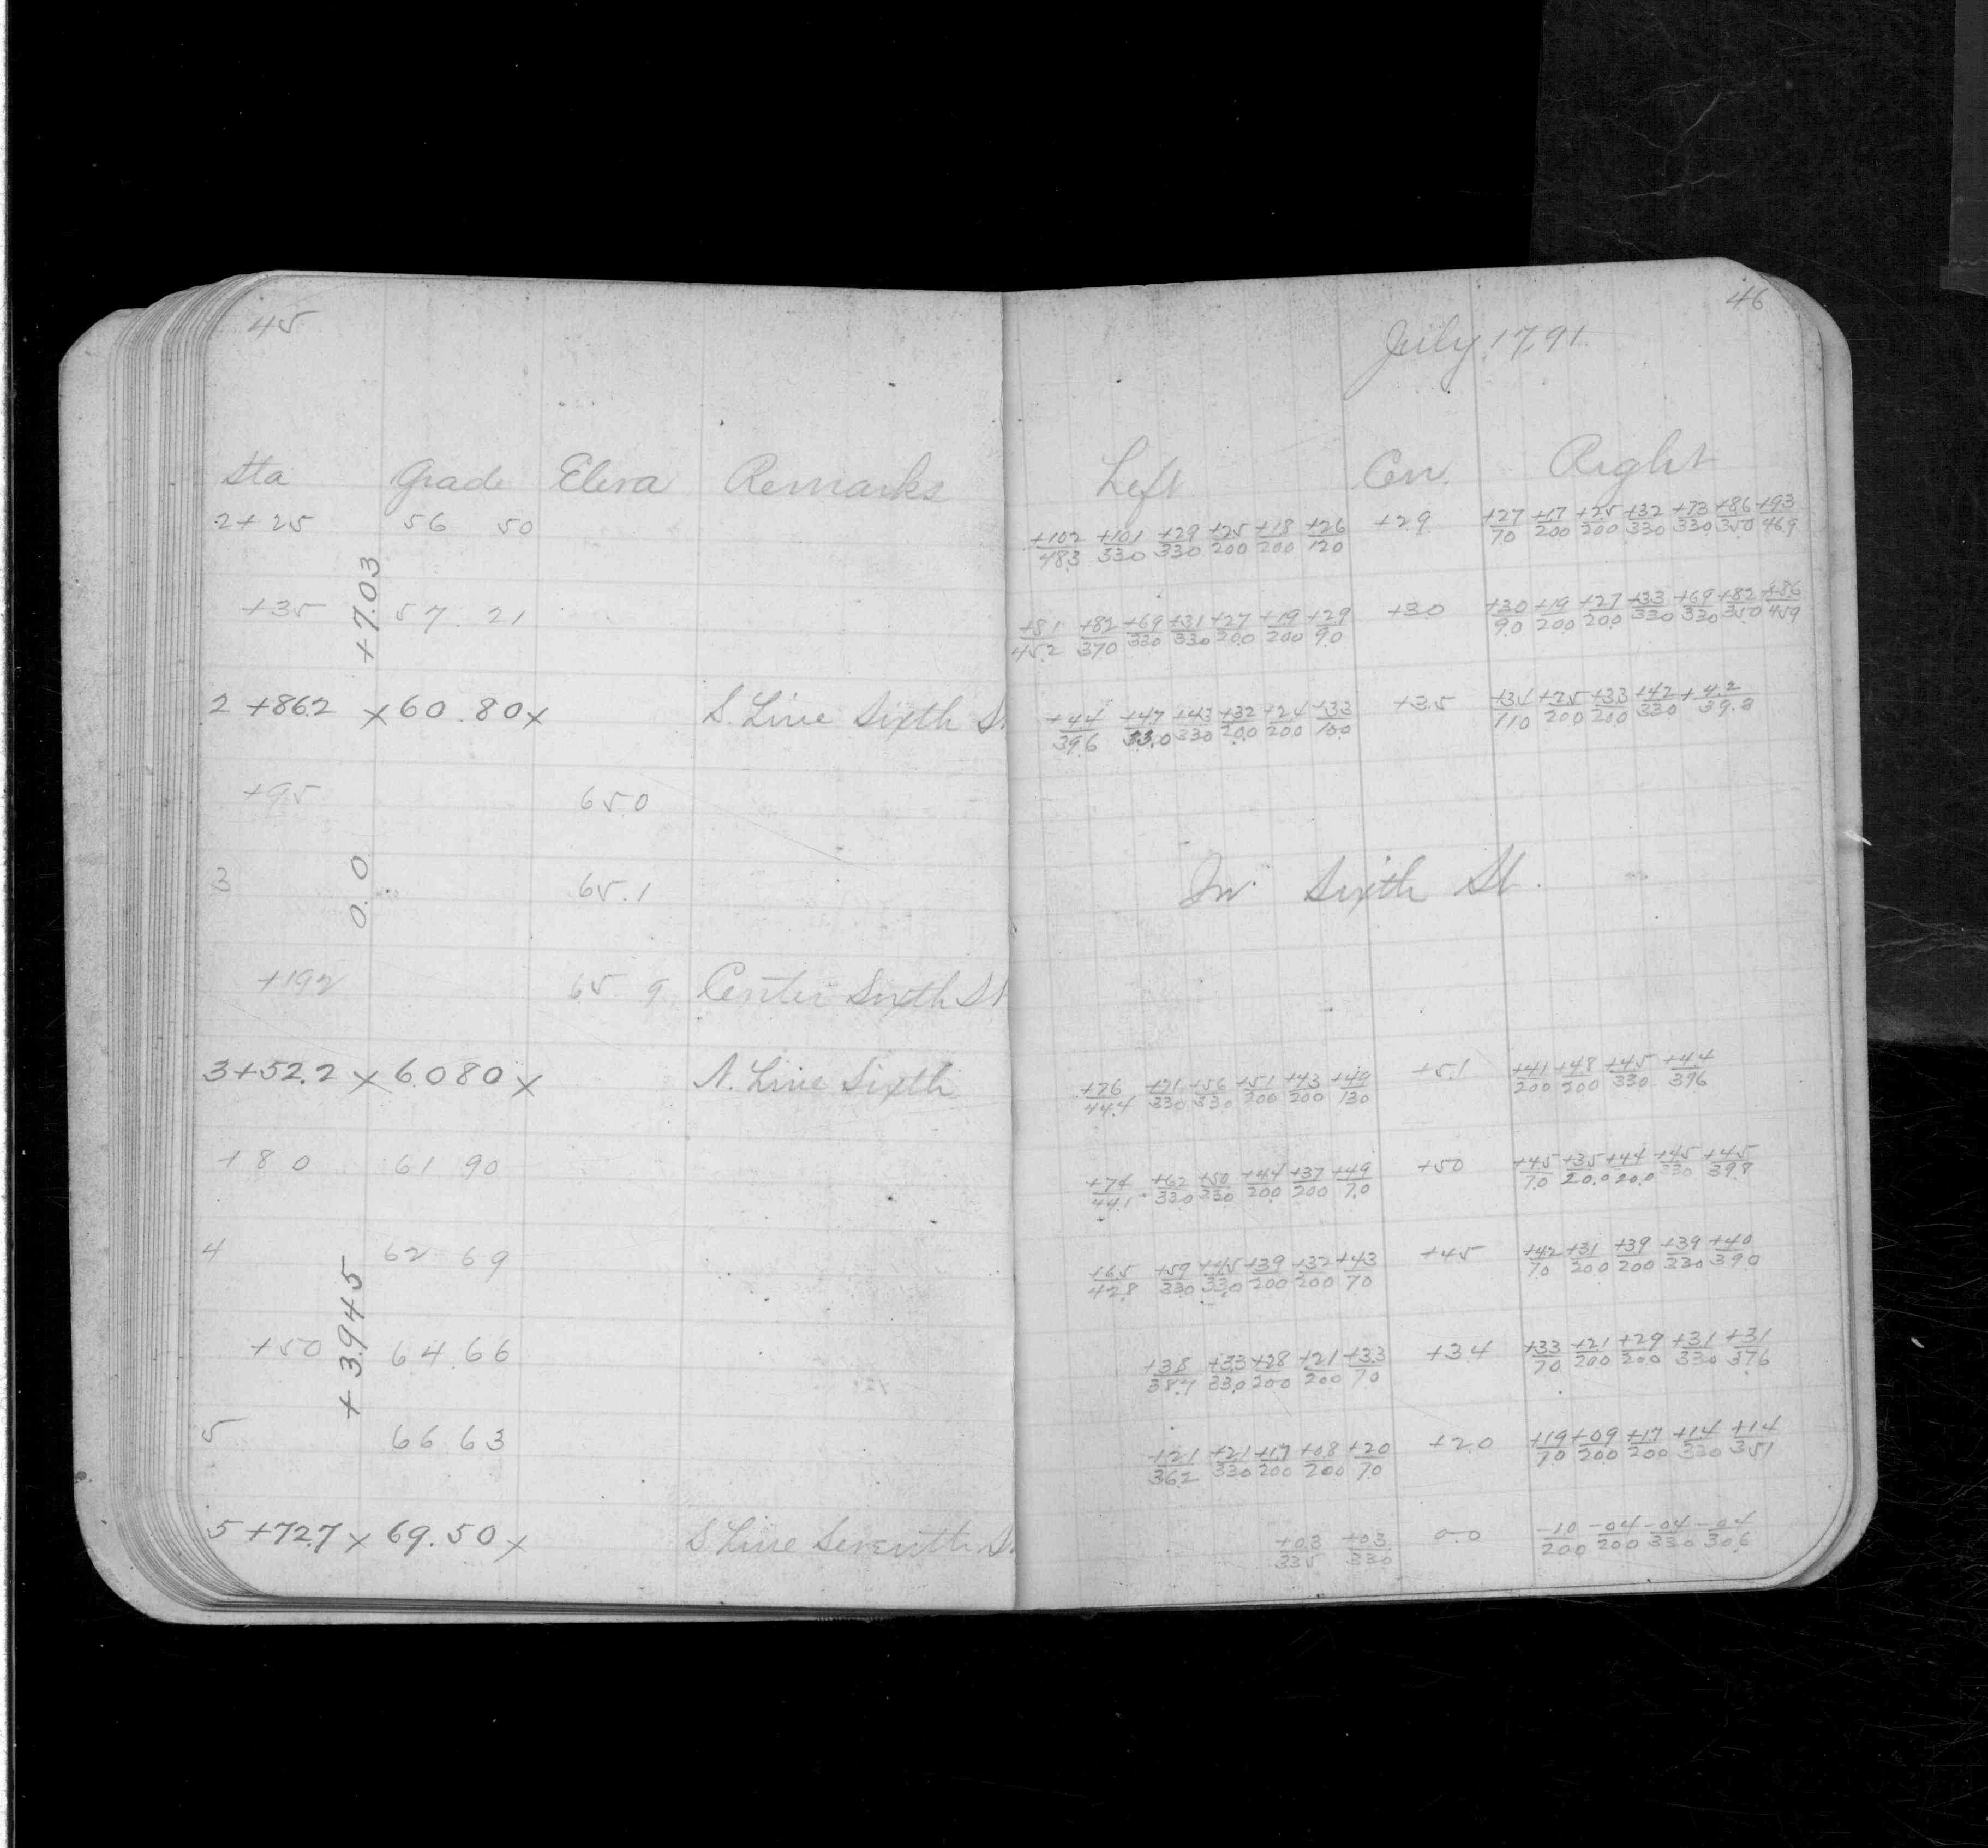 45
Sta Grade Eleva Remarks
2+25 56 50
+7.03
+35 57.21
2+86.2 x 60.80 x S. Line Sixth St
+95 65.0
3 65.1
0.0
+19.2 65.9 Center Sixth St
3+52.2 x 60.80 x N. Line Sixth
+80 61 90
4 62 69
+3.945
+50 64.66
5 66 63
5+72.7 x 69.50 x S Line Seventh St.
46
July 17, 91.
Left Cen. Right
+102/48.3 +101/330 +29/330 +25/200 +18/200 +26/120 +2.9 +27/70 +17/200 +25/200 +32/330 +73/330 +86/350 +93/469
+81/45.2 +82/370 +69/330 +31/330 +27/200 +19/200 +29/9.0 +3.0 +30/9.0 +19/200 +27/200 +33/330 +69/330 +82/350 +86/459
+4.4/39.6 +47/33.0 +43/330 +32/200 +24/200 +33/100 +3.5 +3.1/110 +25/200 +33/200 +42/330 +4.2/39.8
In Sixth St.
+76/44.4 +71/330 +56/330 +51/200 +43/200 +49/130 +5.1 +41/200 +48/200 +45/330 +4.4/396
+74/44.1 +62/330 +50/330 +44/200 +37/200 +49/7.0 +50 +45/7.0 +35/20.0 +44/20.0 +45/330 +45/397
+65/42.8 +59/330 +45/330 +39/200 +32/200 +43/70 +45 +42/70 +31/200 +39/200 +39/330 +40/390
+38/38.7 +33/33.0 +28/200 +21/200 +33/70 +3.4 +33/70 +21/200 +29/200 +31/330 +31/376
+21/36.2 +21/330 +17/200 +08/200 +20/7.0 +2.0 +19/70 +09/200 +17/200 +14/330 +14/351
+03/335 +03/330 0.0 -10/200 -04/200 -04/330 -04/30.6